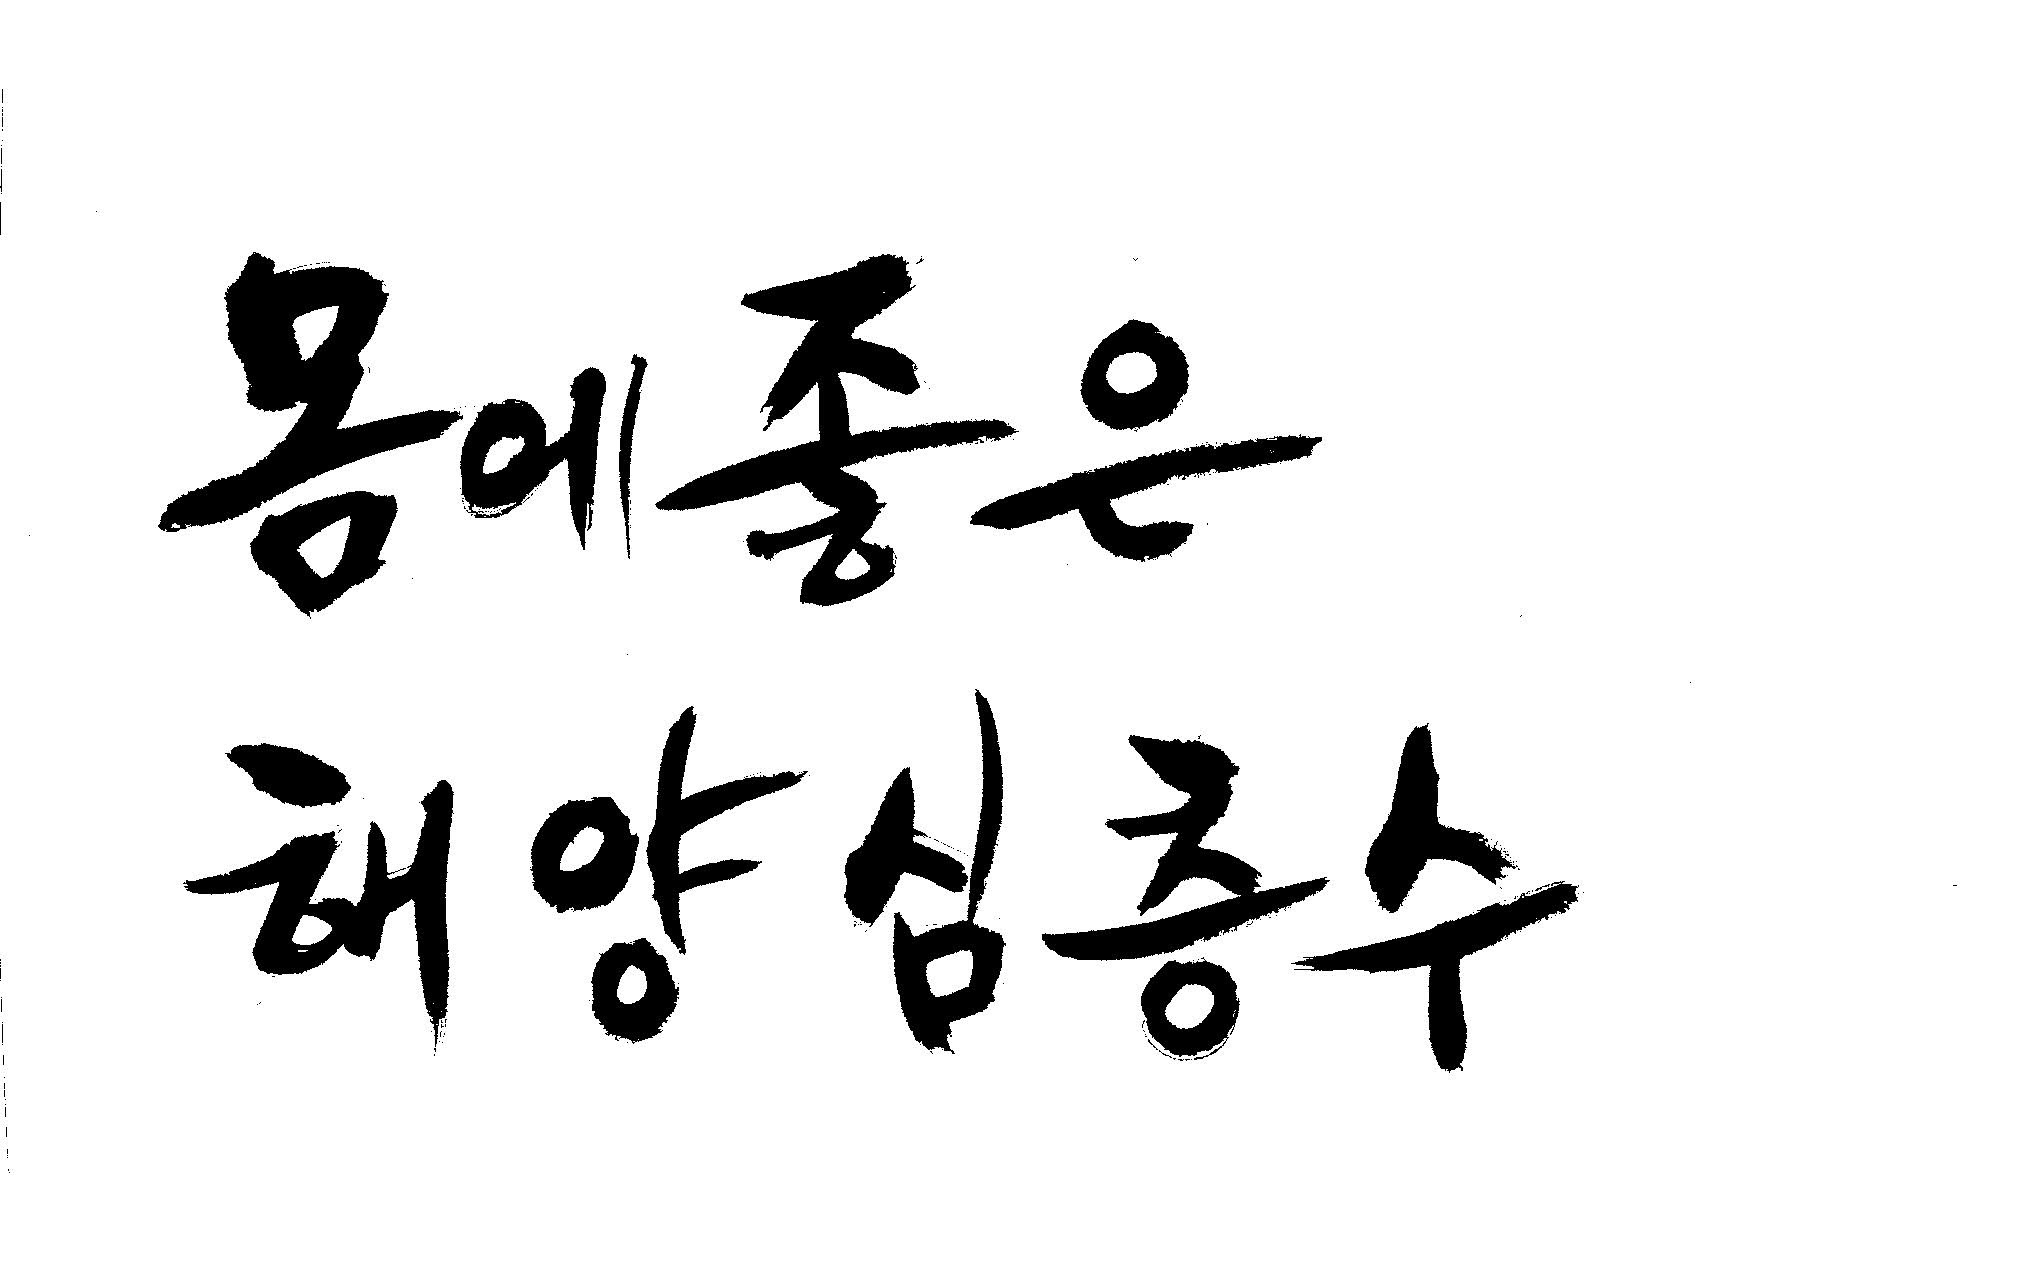 몸에 좋은
해양심층수